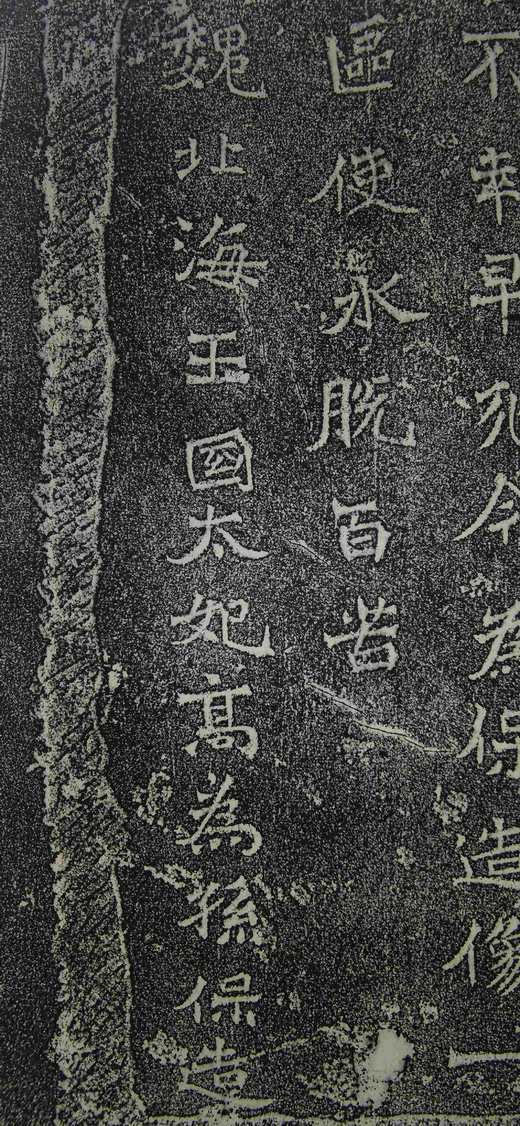 不幸早今為保造像一
區使永脱百苦
魏北海王國太妃高為孫保造